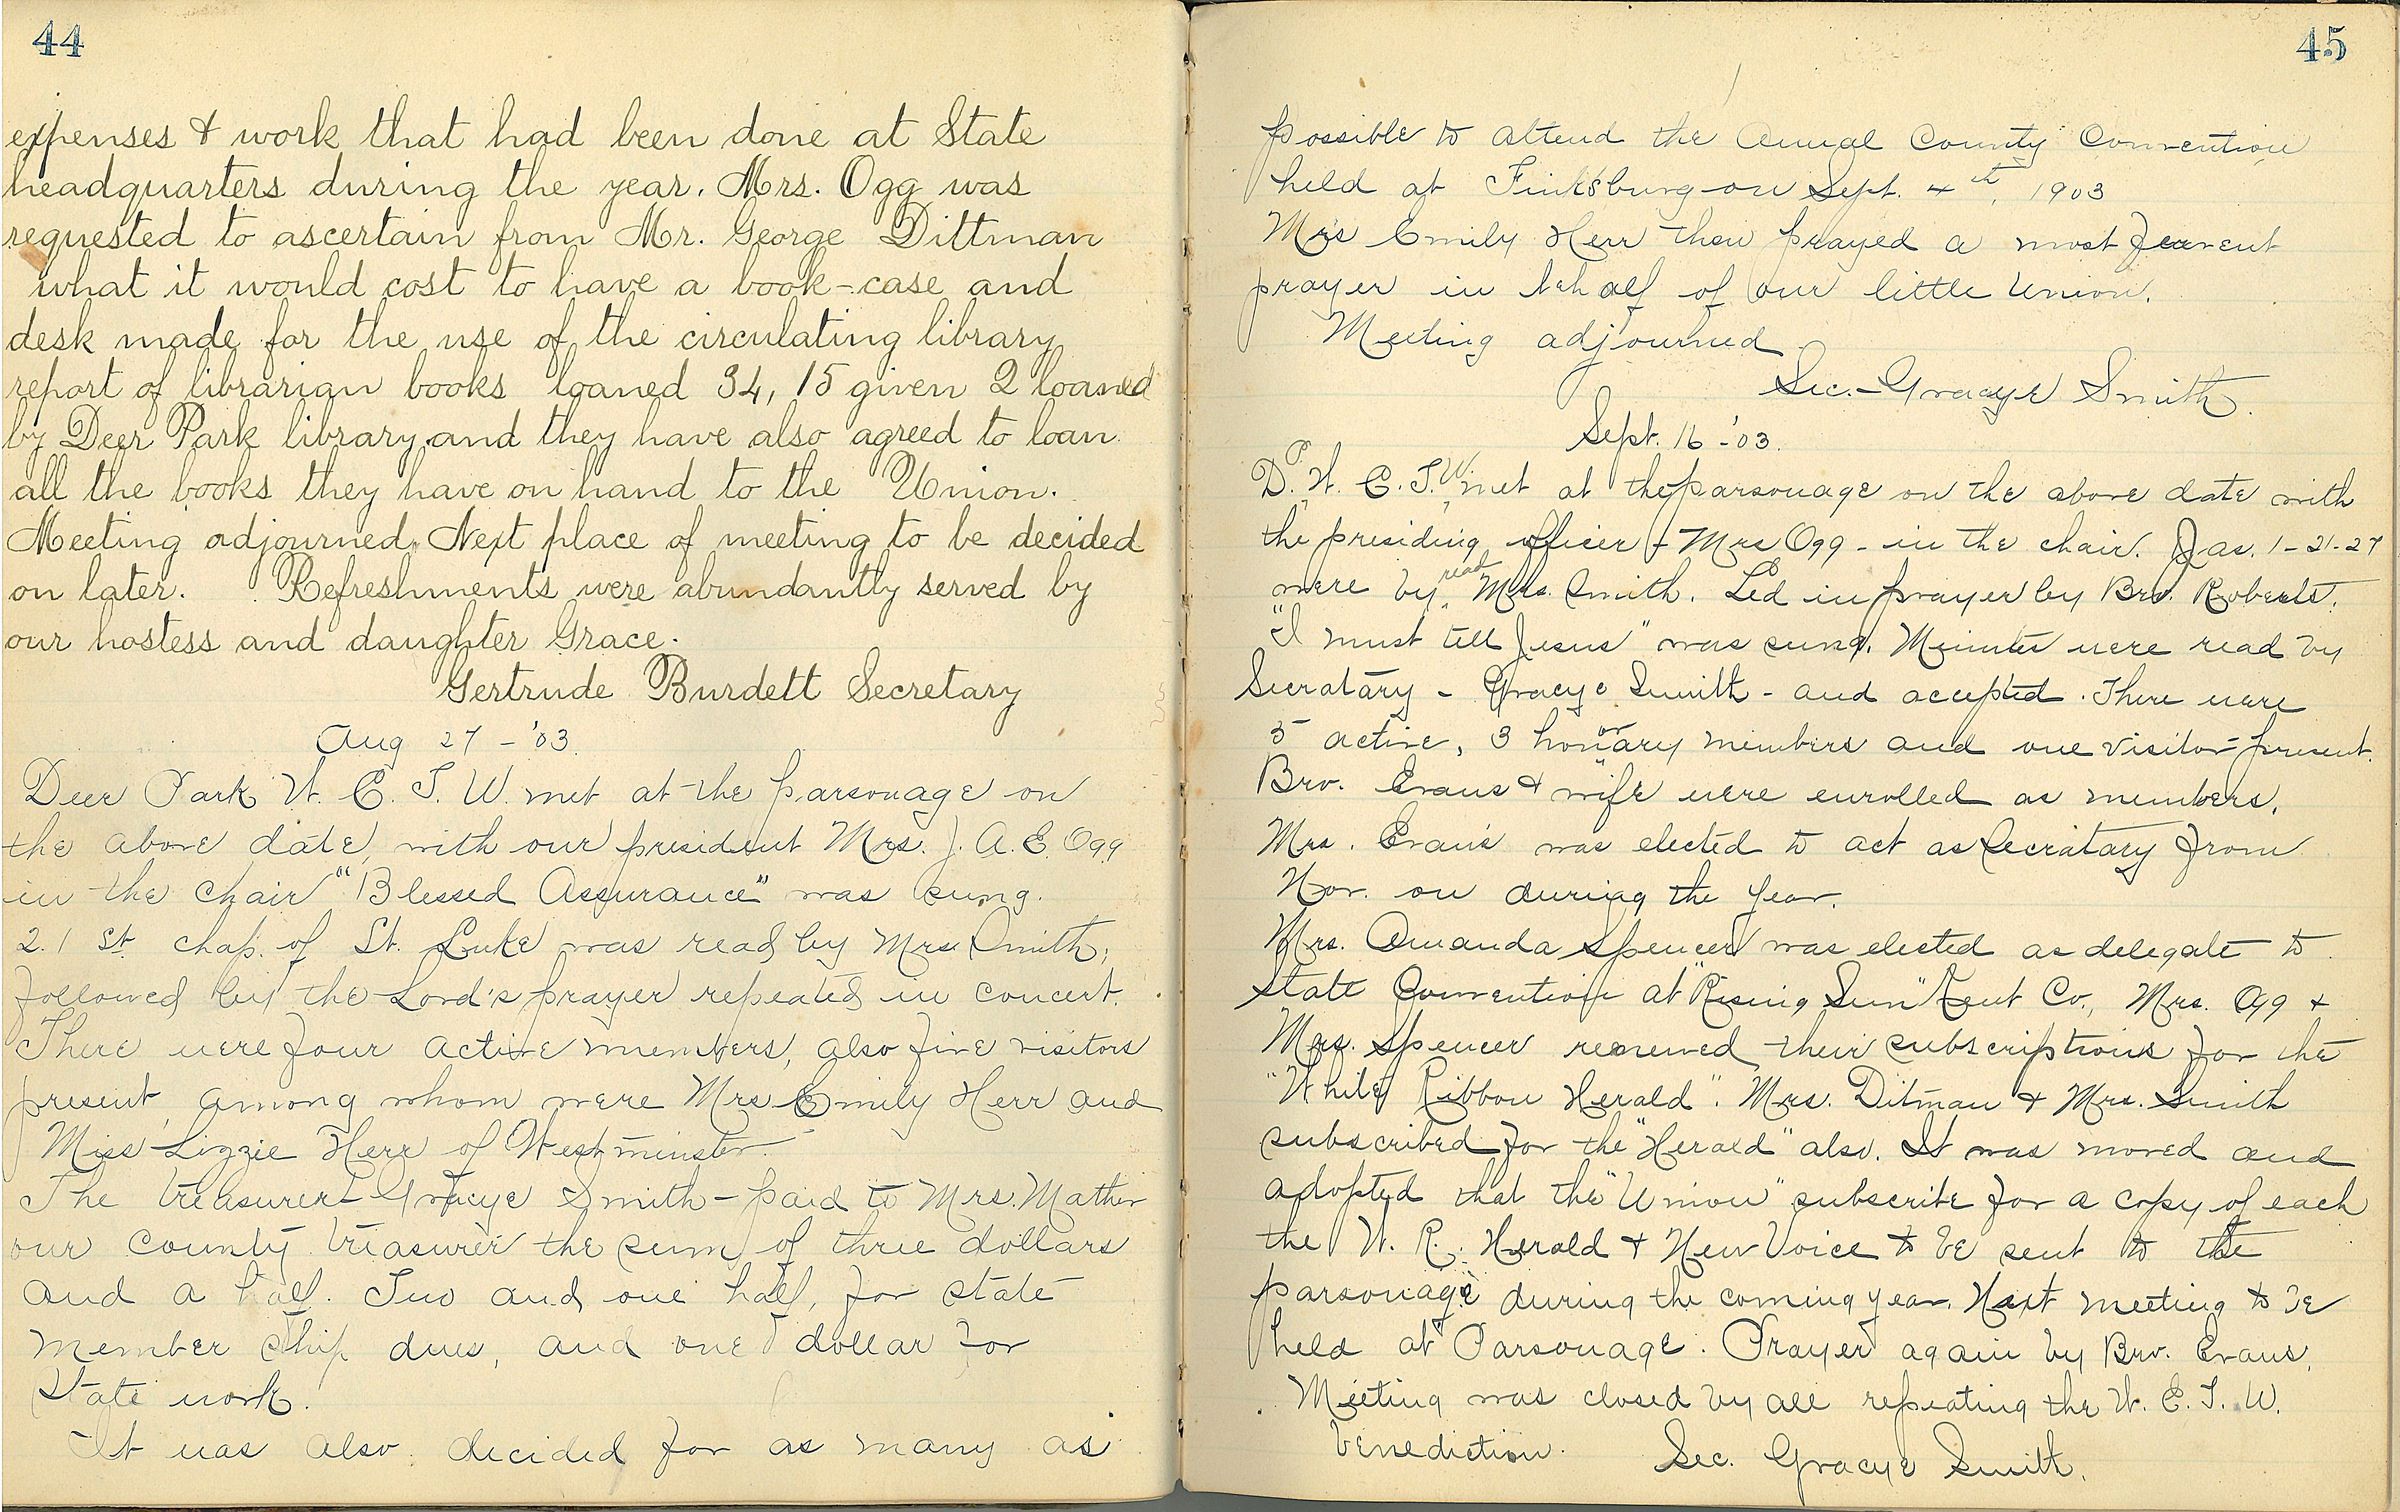 44
expenses & work that had been done at State
headquarters during the year. Mrs. Ogg was
requested to ascertain from Mr. George Dittman
what it would cost to have a book-case and
desk made for the use of the circulating library
report of librarian books loaned 34, 15 given 2 loaned
by Deer Park library and they have also agreed to loan
all the books they have on hand to the Union.
Meeting adjourned. Next place of meeting to be decided
on later. Refreshments were abundantly served by
our hostess and daughter Grace.
Gertrude Burdett Secretary
Aug 27 - '03.
Deer Park W. C. T. U. met at the parsonage on
the above date, with our president Mrs. J. A. E. Ogg
in the chair "Blessed Assurance" was sung.
21st chap. of St. Luke was read by Mrs. Smith,
followed by the Lord's prayer repeated in concert.
There were four active members, also five visitors
present, among whom were Mrs Emily Herr and
Miss Lizzie Herr of Westminster.
The treasurer - Gracye Smith - paid to Mrs. Mather
our county treasurer the sum of three dollars
and a half. Two and one half, for state
member ship dues, and one dollar for
State work.
It was also decided for as many as
45
possible to attend the Annual County Convention
held at Finksburg on Sept. 4th, 1903
Mrs Emily Herr then prayed a most fervent
prayer in behalf of our little Union.
Meeting adjourned.
Sec. - Gracye Smith.
Sept. 16 - '03.
D. P. W. C. T. U. met at the parsonage on the above date with
the presiding officer - Mrs Ogg - in the chair. Jas. 1-21-27
were by read Mrs. Smith. Led in prayer by Bro. Roberts.
"I must tell Jesus" was sung. Minutes were read by
Secratary - Gracye Smith - and accepted. There were
5 active, 3 honorary members and one visitor present.
Bro. Evans & wife were enrolled as members.
Mrs. Evans was elected to act as Secratary from
Nov. on during the year.
Mrs. Amanda Spencer was elected as delegate to
State Convention at "Rising Sun" Kent Co., Mrs. Ogg &
Mrs. Spencer renewed their subscriptions for the
"White Ribbon Herald". Mrs. Ditman & Mrs. Smith
subscribed for the "Herald" also. It was moved and
adopted that the "Union" subscribe for a copy of each
the W. R. Herald & New Voice to be sent to the
parsonage during the coming year. Next meeting to be
held at Parsonage. Prayer again by Bro. Evans.
Meeting was closed by all repeating the W. C. T. U.
benediction. Sec. Gracye Smith.